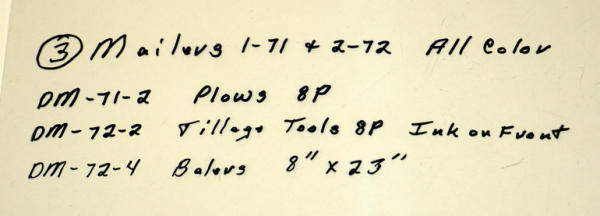 ③ Mailers 1-71 & 2-72 All Color
DM-71-2 Plows 8P
DM-72-2 Tillage Tools 8P Ink on Front
DM-72-4 Balers 8" x 23"